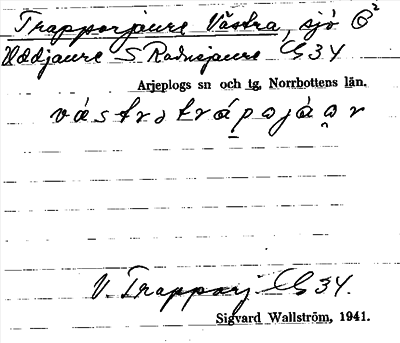 Trapporjaure Västra, sjö
Uddjaure S. Radnejaure 34
Arjeplogs sn och tg, Norrbottens län.
västrə trápəjáər
V. Trapparj 34.
Sigvard Wallström, 1941.